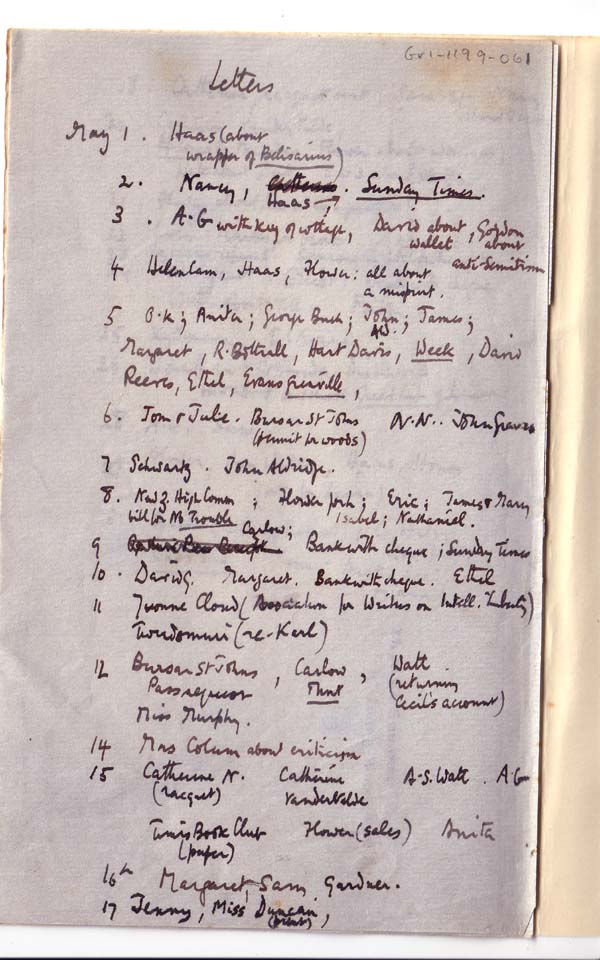 Gr1-1199-061
Letters
May 1. Haas (about
wrapper of Belisarius)
2. Nancy, . Sunday Times.
Haas
3. A.G with key of cottage, David about, Gordon
wallet about
anti-Semitism
4 Helen Cam, Haas, Flower: all about
a misprint.
5 O.K; Anita; George Buch; John; James;
Ald.
Margaret, R. Bottrall, Hart Davis, Week, David
Reeves, Ethel, Evans Grenville,
6. Tom & Julie. Bursar St Johns N.N.. John Graves
(permit for woods)
7 Schwartz. John Aldridge.
8. New Z. High Comm ; Flower ; Eric; James & Mary
bill for No Trouble Isabel; Nathaniel.
Carlow;
9 Bank with cheque; Sunday Times
10. David G. Margaret. Bank with cheque. Ethel
11 Yvonne Cloud (Association for Writers on Intell. Liberty)
(re-Karl)
12 Bursar St Johns, Carlow, Watt.
Pass request Mint (returning
Cecil's account)
Miss Murphy.
14 Mrs Colum about criticism
15 Catherine N. Catherine A.S. Watt. A.G
(racquet) Vandervelde
Times Book Club Flower (sales) Anita
(paper)
16th Margaret, Sam, Gardner.
17 Jenny, Miss Duncan,